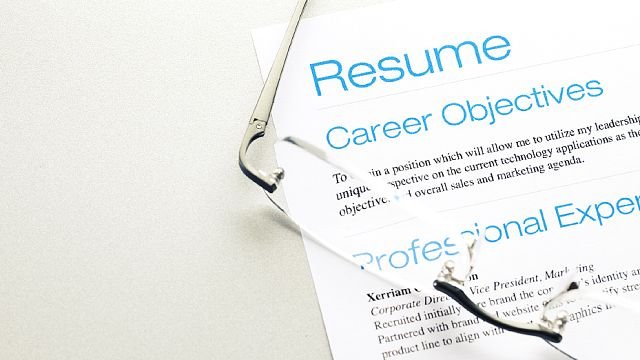 Resume
Career Objectives
To in a position which will allow me to utilize my leadership
unique spective on the current technology applications as the
objective nd overall sales and marketing agenda.
Professional Exper
Xerriam on
Corporate Dire Vice President, Marketing
Recruited initially re brand the con identity a
Partnered with brand website strem
product line to align with graphics